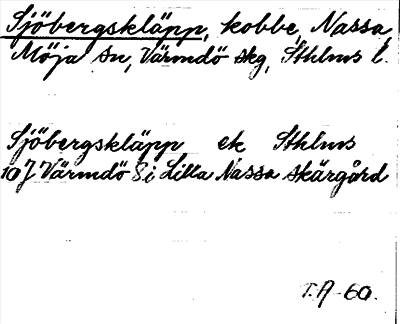 Sjöbergskläpp, kobbe, Nassa,
Möja sn, Värmdö skg, Sthlms l.
Sjöbergskläpp ek Sthlms
10J Värmdö S i Lilla Nassa skärgård
T.A-60.